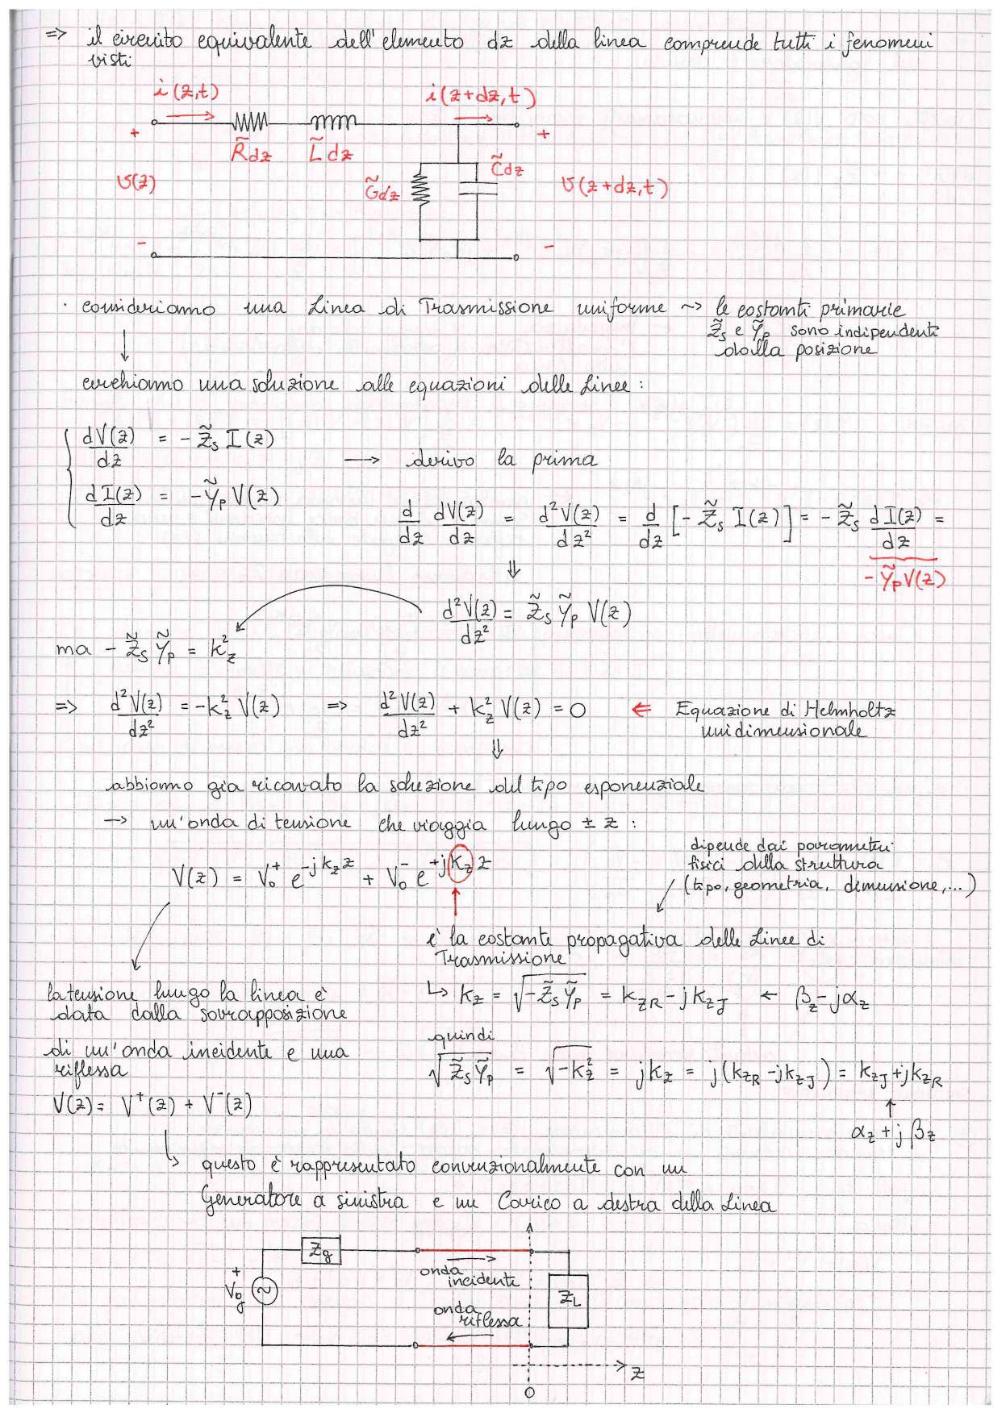 => il circuito equivalente dell'elemento dz della linea comprende tutti i fenomeni
visti
i(z,t)
i(z+dz,t)
+
+
R̃dz
L̃dz
C̃dz
G̃dz
v(z)
v(z+dz,t)
-
-
· consideriamo una Linea di Trasmissione uniforme ~> le costanti primarie
Z̃s e Ỹp sono indipendenti
dalla posizione
cerchiamo una soluzione alle equazioni delle Linee:
dV(z)/dz = - Z̃s I(z)
dI(z)/dz = - Ỹp V(z)
→ derivo la prima
d/dz dV(z)/dz = d²V(z)/dz² = d/dz [- Z̃s I(z)] = - Z̃s dI(z)/dz =
- Ỹp V(z)
⇓
d²V(z)/dz² = Z̃s Ỹp V(z)
ma - Z̃s Ỹp = k²z
=> d²V(z)/dz² = -k²z V(z) => d²V(z)/dz² + k²z V(z) = 0 ⇐ Equazione di Helmholtz
unidimensionale
⇓
abbiamo già ricavato la soluzione del tipo esponenziale
→ un'onda di tensione che viaggia lungo ± z :
dipende dai parametri
fisici della struttura
(tipo, geometria, dimensione,...)
V(z) = V₀⁺ e^-jkz z + V₀⁻ e^+jkz z
è la costante propagativa delle Linee di
Trasmissione
↳ kz = √-Z̃s Ỹp = kzR - jkzJ ← βz - jαz
la tensione lungo la linea è
data dalla sovrapposizione
di un'onda incidente e una
riflessa
V(z) = V⁺(z) + V⁻(z)
quindi
√Z̃s Ỹp = √-k²z = jkz = j(kzR - jkzJ) = kzJ + jkzR
↑
αz + j βz
↳ questo è rappresentato convenzionalmente con un
Generatore a sinistra e un Carico a destra della Linea
Zg
+
V₀g
onda
incidente
onda
riflessa
ZL
z
0